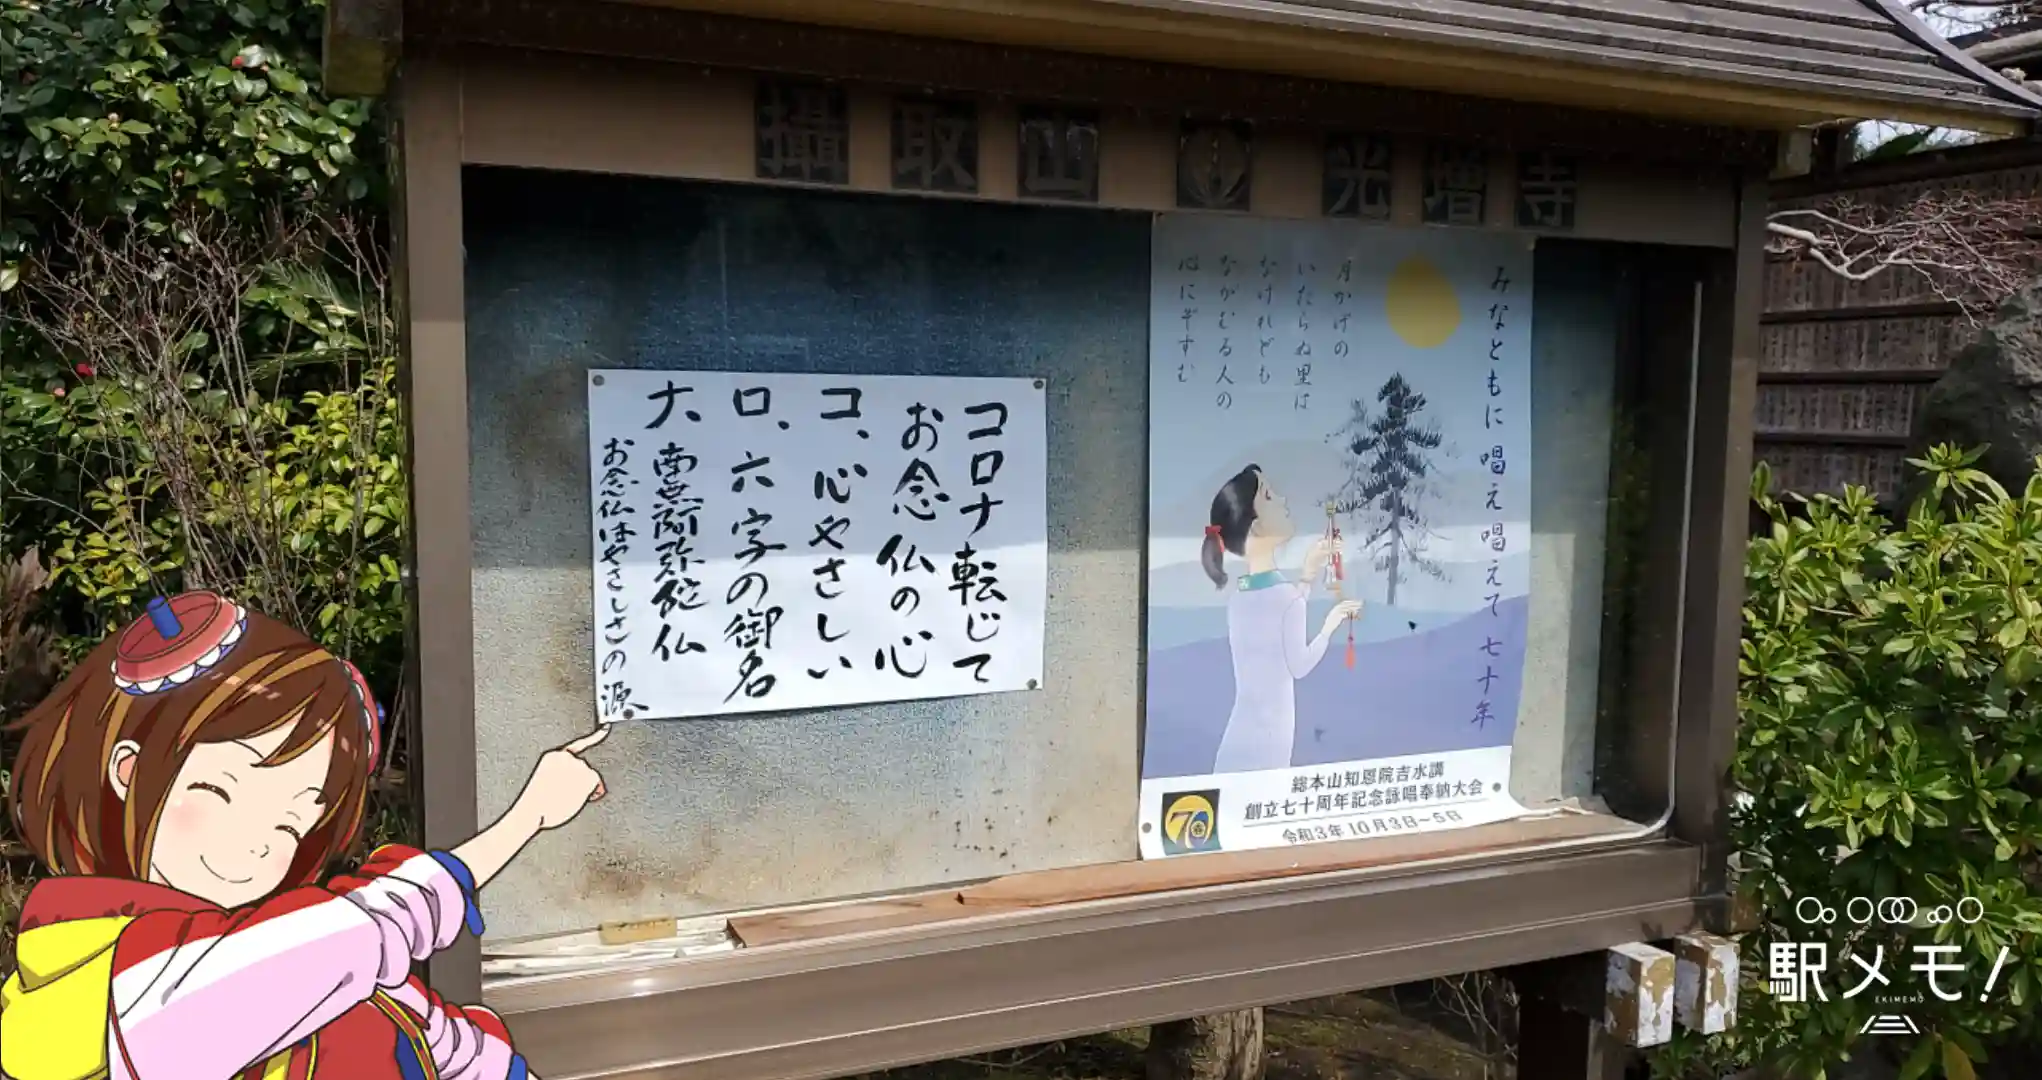 攝取山 光増寺
コロナ転じて
お念仏の心
コ、心やさしい
ロ、六字の御名
ナ、南無阿弥陀仏
お念仏はやさしさの源
みなともに唱え唱えて七十年
月かげの
いたらぬ里は
なけれども
ながむる人の
心にぞすむ
総本山知恩院吉水講
創立七十周年記念詠唱奉納大会
令和3年10月3日~5日
70
駅メモ!
EKIMEMO